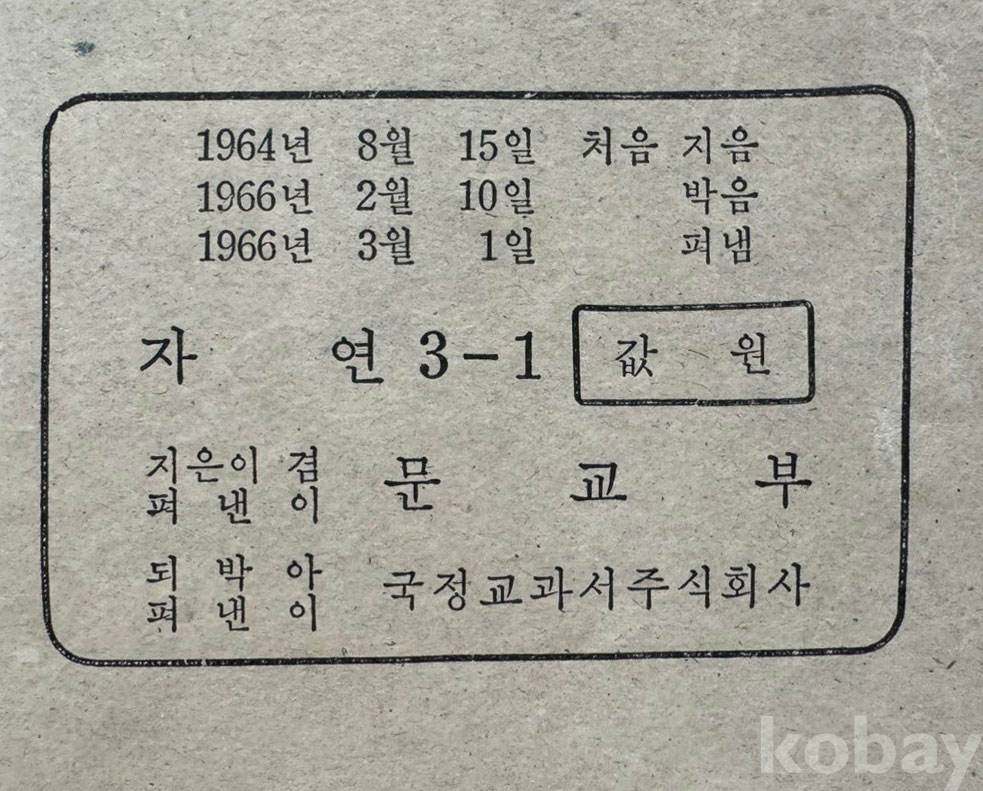 1964년 8월 15일 처음 지음
1966년 2월 10일 박음
1966년 3월 1일 펴냄
자 연 3-1 값 원
지은이 겸
펴 낸 이
문 교 부
되 박 아
펴 낸 이
국정교과서주식회사
kobay